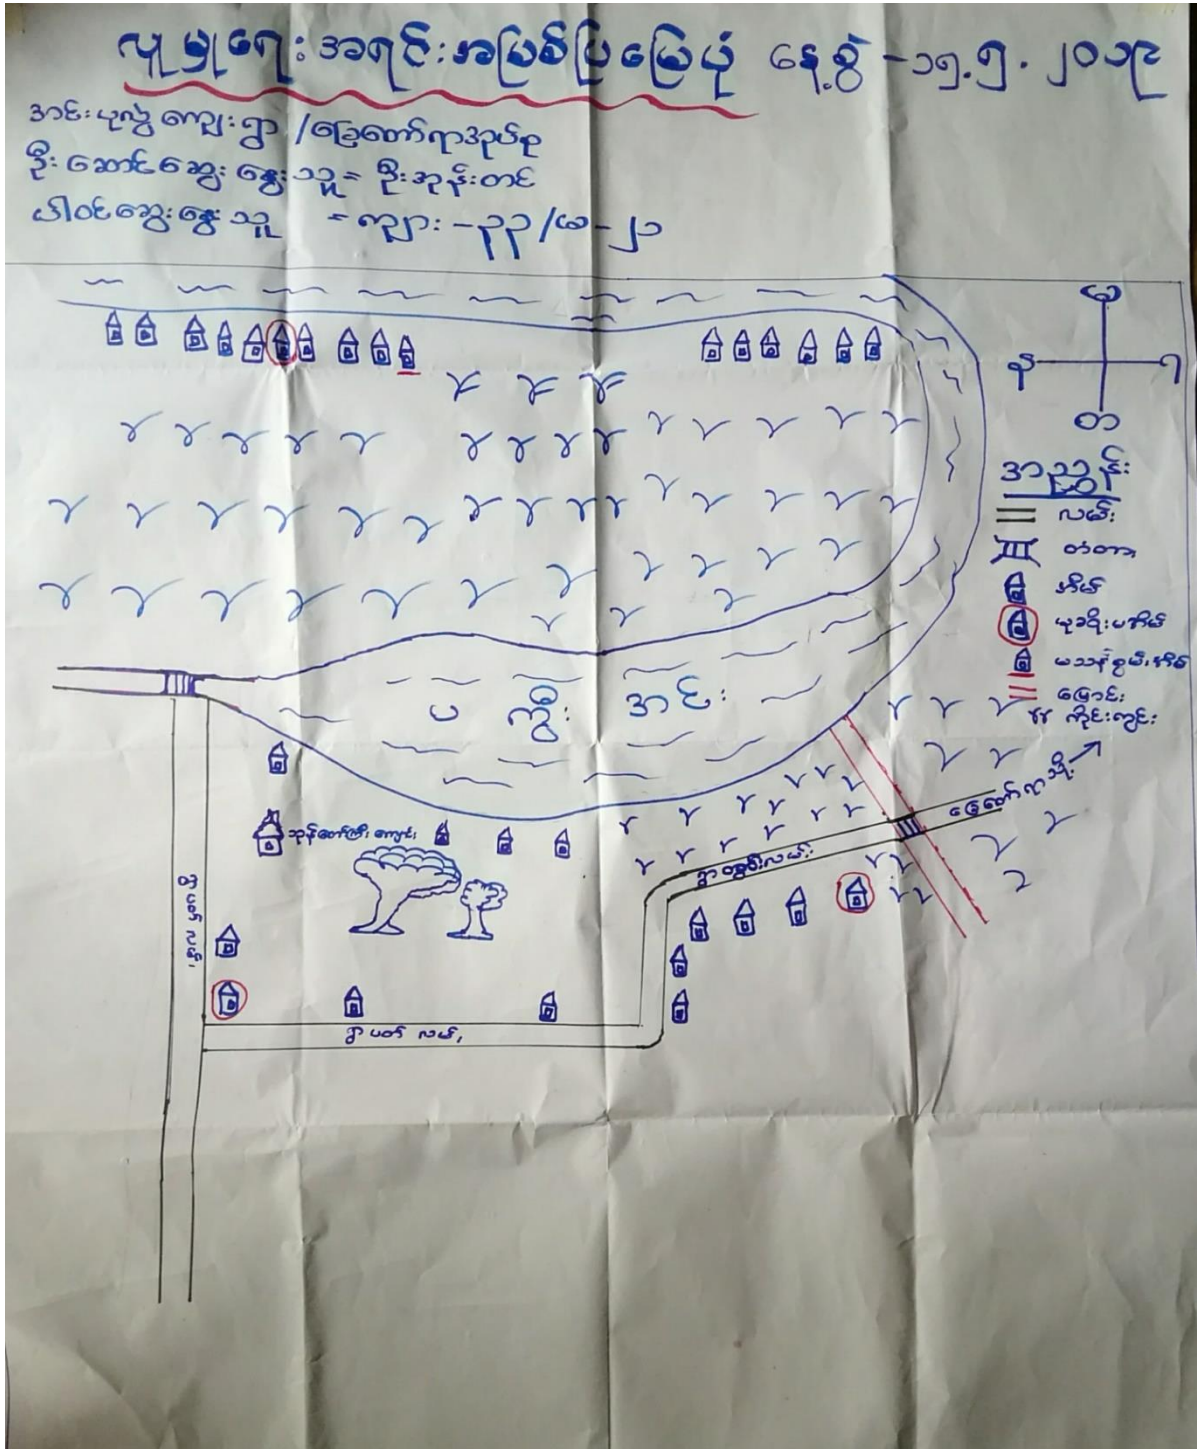 လူမှုရေးအရင်းအမြစ်ပြမြေပုံ နေ့စွဲ - ၁၅.၅.၂၀၁၉
အင်းပုလွဲကျေးရွာ / ခြေတော်ရာအုပ်စု
ဦးဆောင်ဆွေးနွေးသူ = ဦးအုန်းတင်
ပါဝင်ဆွေးနွေးသူ = ကျား - ၃၃ / မ - ၂၁
မ
န
ရ
တ
အညွှန်း
လမ်း
တံတား
အိမ်
မသန်စွမ်းအိမ်
မြောင်း
ကိုင်းကျွင်း
ပကွီးအင်း
ခြေတော်ရာသို့
ဘုန်တော်ကြီးကျောင်း
ရွာပတ်လမ်း
ရွာပတ်လမ်း